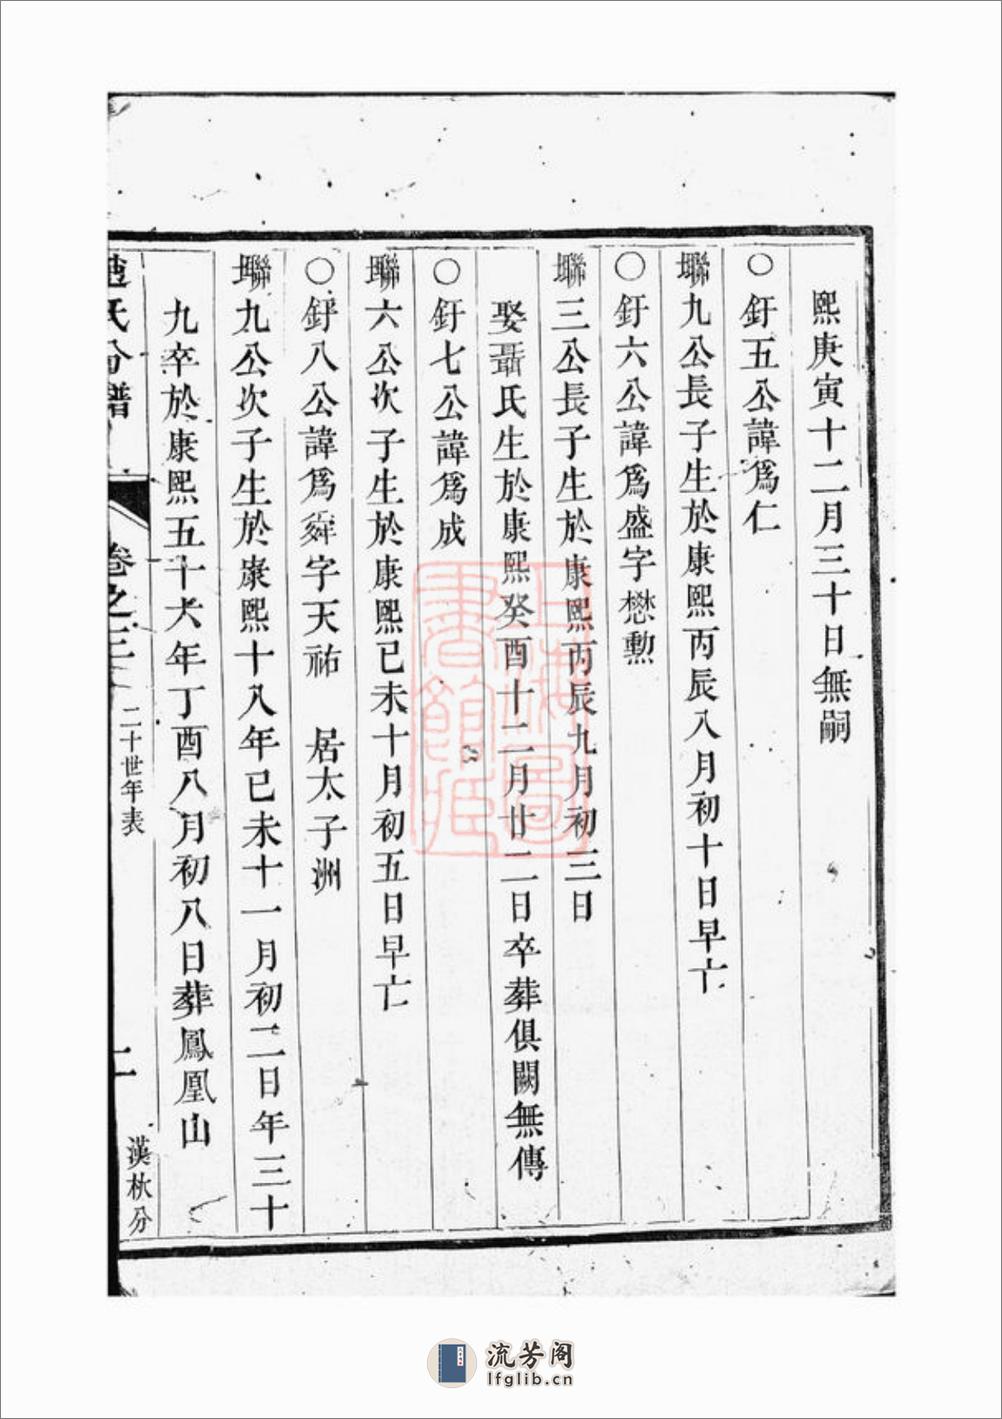 熙庚寅十二月三十日無嗣
〇釪五公諱爲仁
聯九公長子生於康熙丙辰八月初十日早亡
〇釪六公諱爲盛字懋勲
聯三公長子生於康熙丙辰九月初三日
娶聶氏生於康熙癸酉十二月廿二日卒葬俱闕無傳
〇釪七公諱爲成
聯六公次子生於康熙己未十月初五日早亡
〇釪八公諱爲舜字天祐 居太子洲
聯九公次子生於康熙十八年己未十一月初二日年三十
九卒於康熙五十六年丁酉八月初八日葬鳳凰山
趙氏分譜 卷之三 二十世年表 二 漢秋分
上海圖書館藏
流芳阁
lfglib.cn